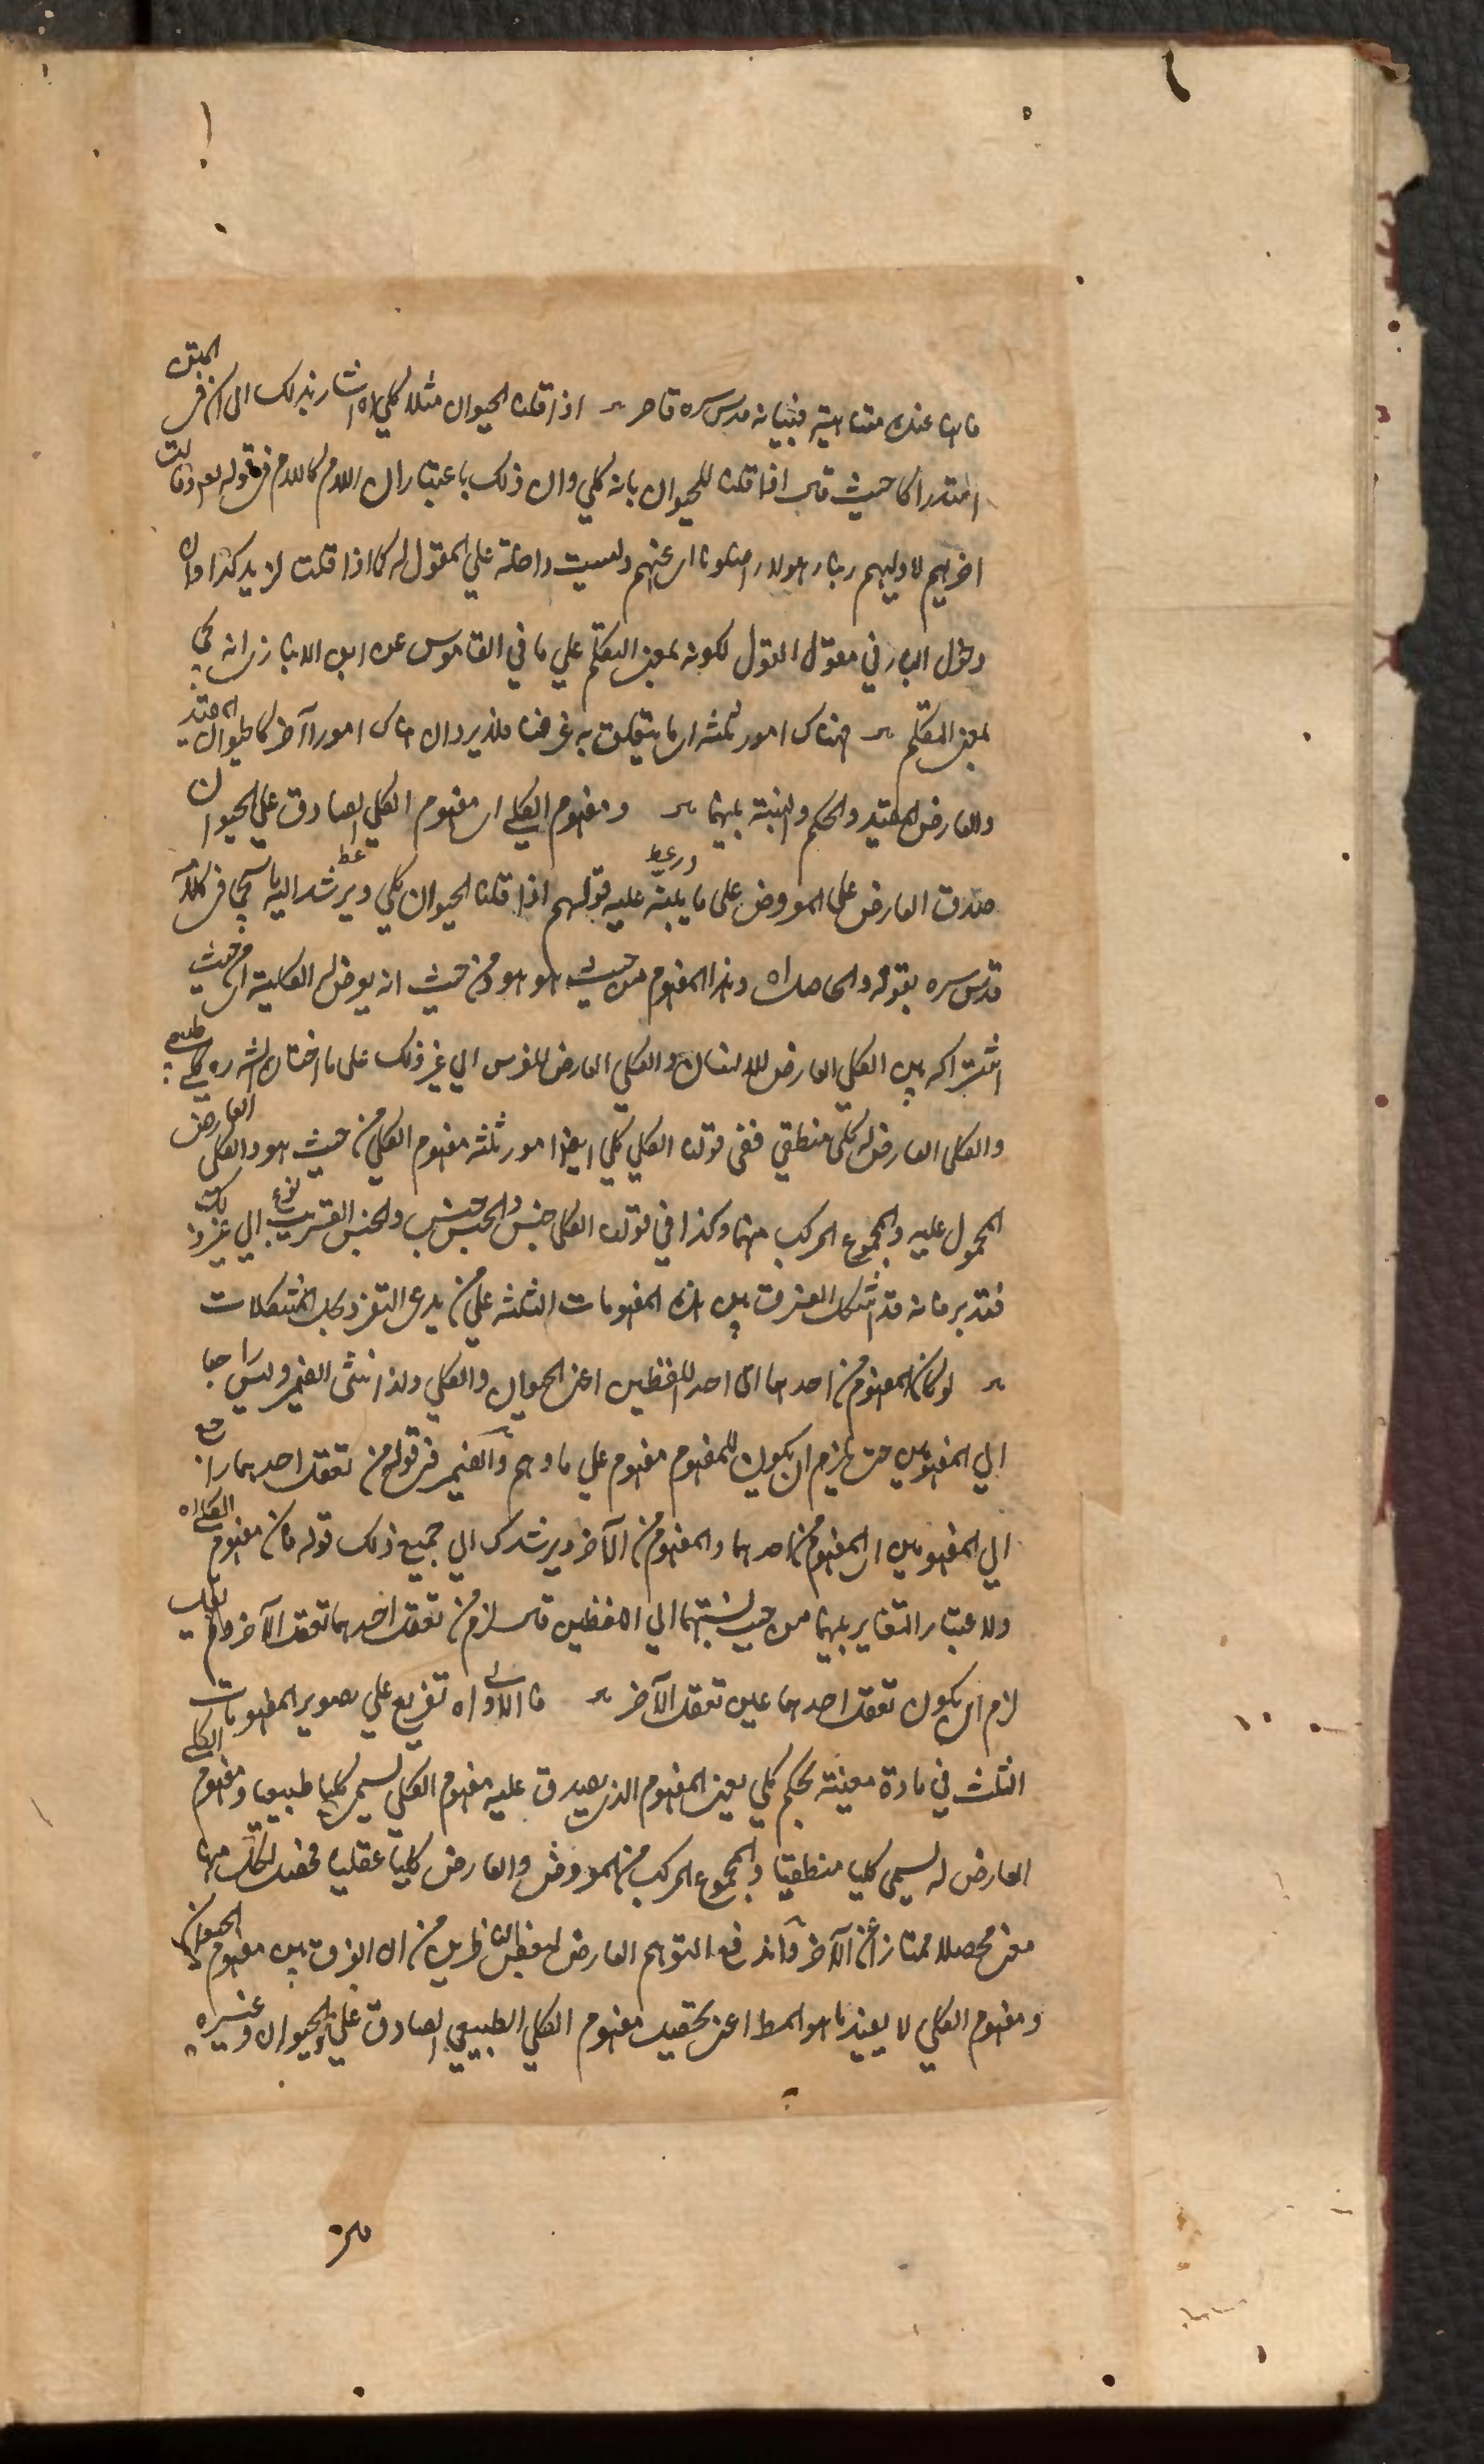 فانها عنده متناهية فبيانه قدس سره قاصر اذا قلنا الحيوان مثلا كلي اه اشار بذلك الى ان في المتن
استدراكا حيث قال اذا قلنا للحيوان بانه كلي وان ذلك باعتبار ان اللام كاللام في قوله تعه وقالت
اخريهم لاوليهم ربنا هولاء اضلونا اى عنهم وليست داخلة على المقول له كما اذا قلت لزيد كذا وان
دخول الباء في مقول القول لكونه بمعنى التكلم علي ما في القاموس عن ابن الانباري انه يجي
بمعنى التكلم هناك امور ثلثه اى ما يتعلق به غرضنا فلا يرد ان هناك امورا آخر كالحيوان المقيد
والعارض المقيد والحكم والنسبة بينهما ومفهوم الكلي اى مفهوم الكلي الصادق علي الحيوان
صدق العارض على المعروض على ما ينبه عليه قولهم اذا قلنا الحيوان كلي ويرشد اليه ما سيجي في كلامه
قدس سره بقوله والحاصل اه وهذا المفهوم من حيث هو هو ومن حيث انه يعرض له الكلية اى من حيث
اشتراكه بين الكلي العارض للانسان والكلي العارض للفرس الي غير ذلك على ما اختاره الشه ره كلي طبيعي
والكلي العارض له كلي منطقي ففي قولنا الكلي كلي ايضا امور ثلثه مفهوم الكلي من حيث هو والكلي العارض
المحمول عليه والمجموع المركب منهما وكذا في قولنا الكلي جنس والجنس جنس والجنس القريب نوع الي غير ذلك
فتدبر فانه قد اشكل الفرق بين هذه المفهومات الثلثه علي من يدعى التفرد بحل المشكلات
لو كان المفهوم من احدهما اى احد اللفظين اعنى الحيوان والكلي ولذا ثنى الضمير وليس راجعا
الي المفهومين حتى يلزم ان يكون للمفهوم مفهوم علي ما وهم والضمير في قوله من تعقل احدهما راجع
الي المفهومين اى المفهوم من احدهما والمفهوم من الآخر ويرشدك الي جميع ذلك قوله فان مفهوم الكلي اه
ولاعتبار التغاير بينهما من حيث نسبتهما الي اللفظين قال لزم من تعقل احدهما تعقل الآخر ولم يقل
لزم ان يكون تعقل احدهما عين تعقل الآخر فالاول اه تفريع علي تصوير المفهومات
الثلث في مادة معينة بحكم كلي يعنى المفهوم الذى يصدق عليه مفهوم الكلي يسمى كليا طبيعيا ومفهوم الكلي
العارض له يسمى كليا منطقيا والمجموع المركب من المعروض والعارض كليا عقليا فحصل لكل منها
معنى محصلا ممتازا عن الآخر واندفع التوهم العارض لبعض الناظرين من ان الفرق بين مفهوم الحيوان
ومفهوم الكلي لا يفيد ما هو المط اعنى تحقيق مفهوم الكلي الطبيعي الصادق علي الحيوان وغيره